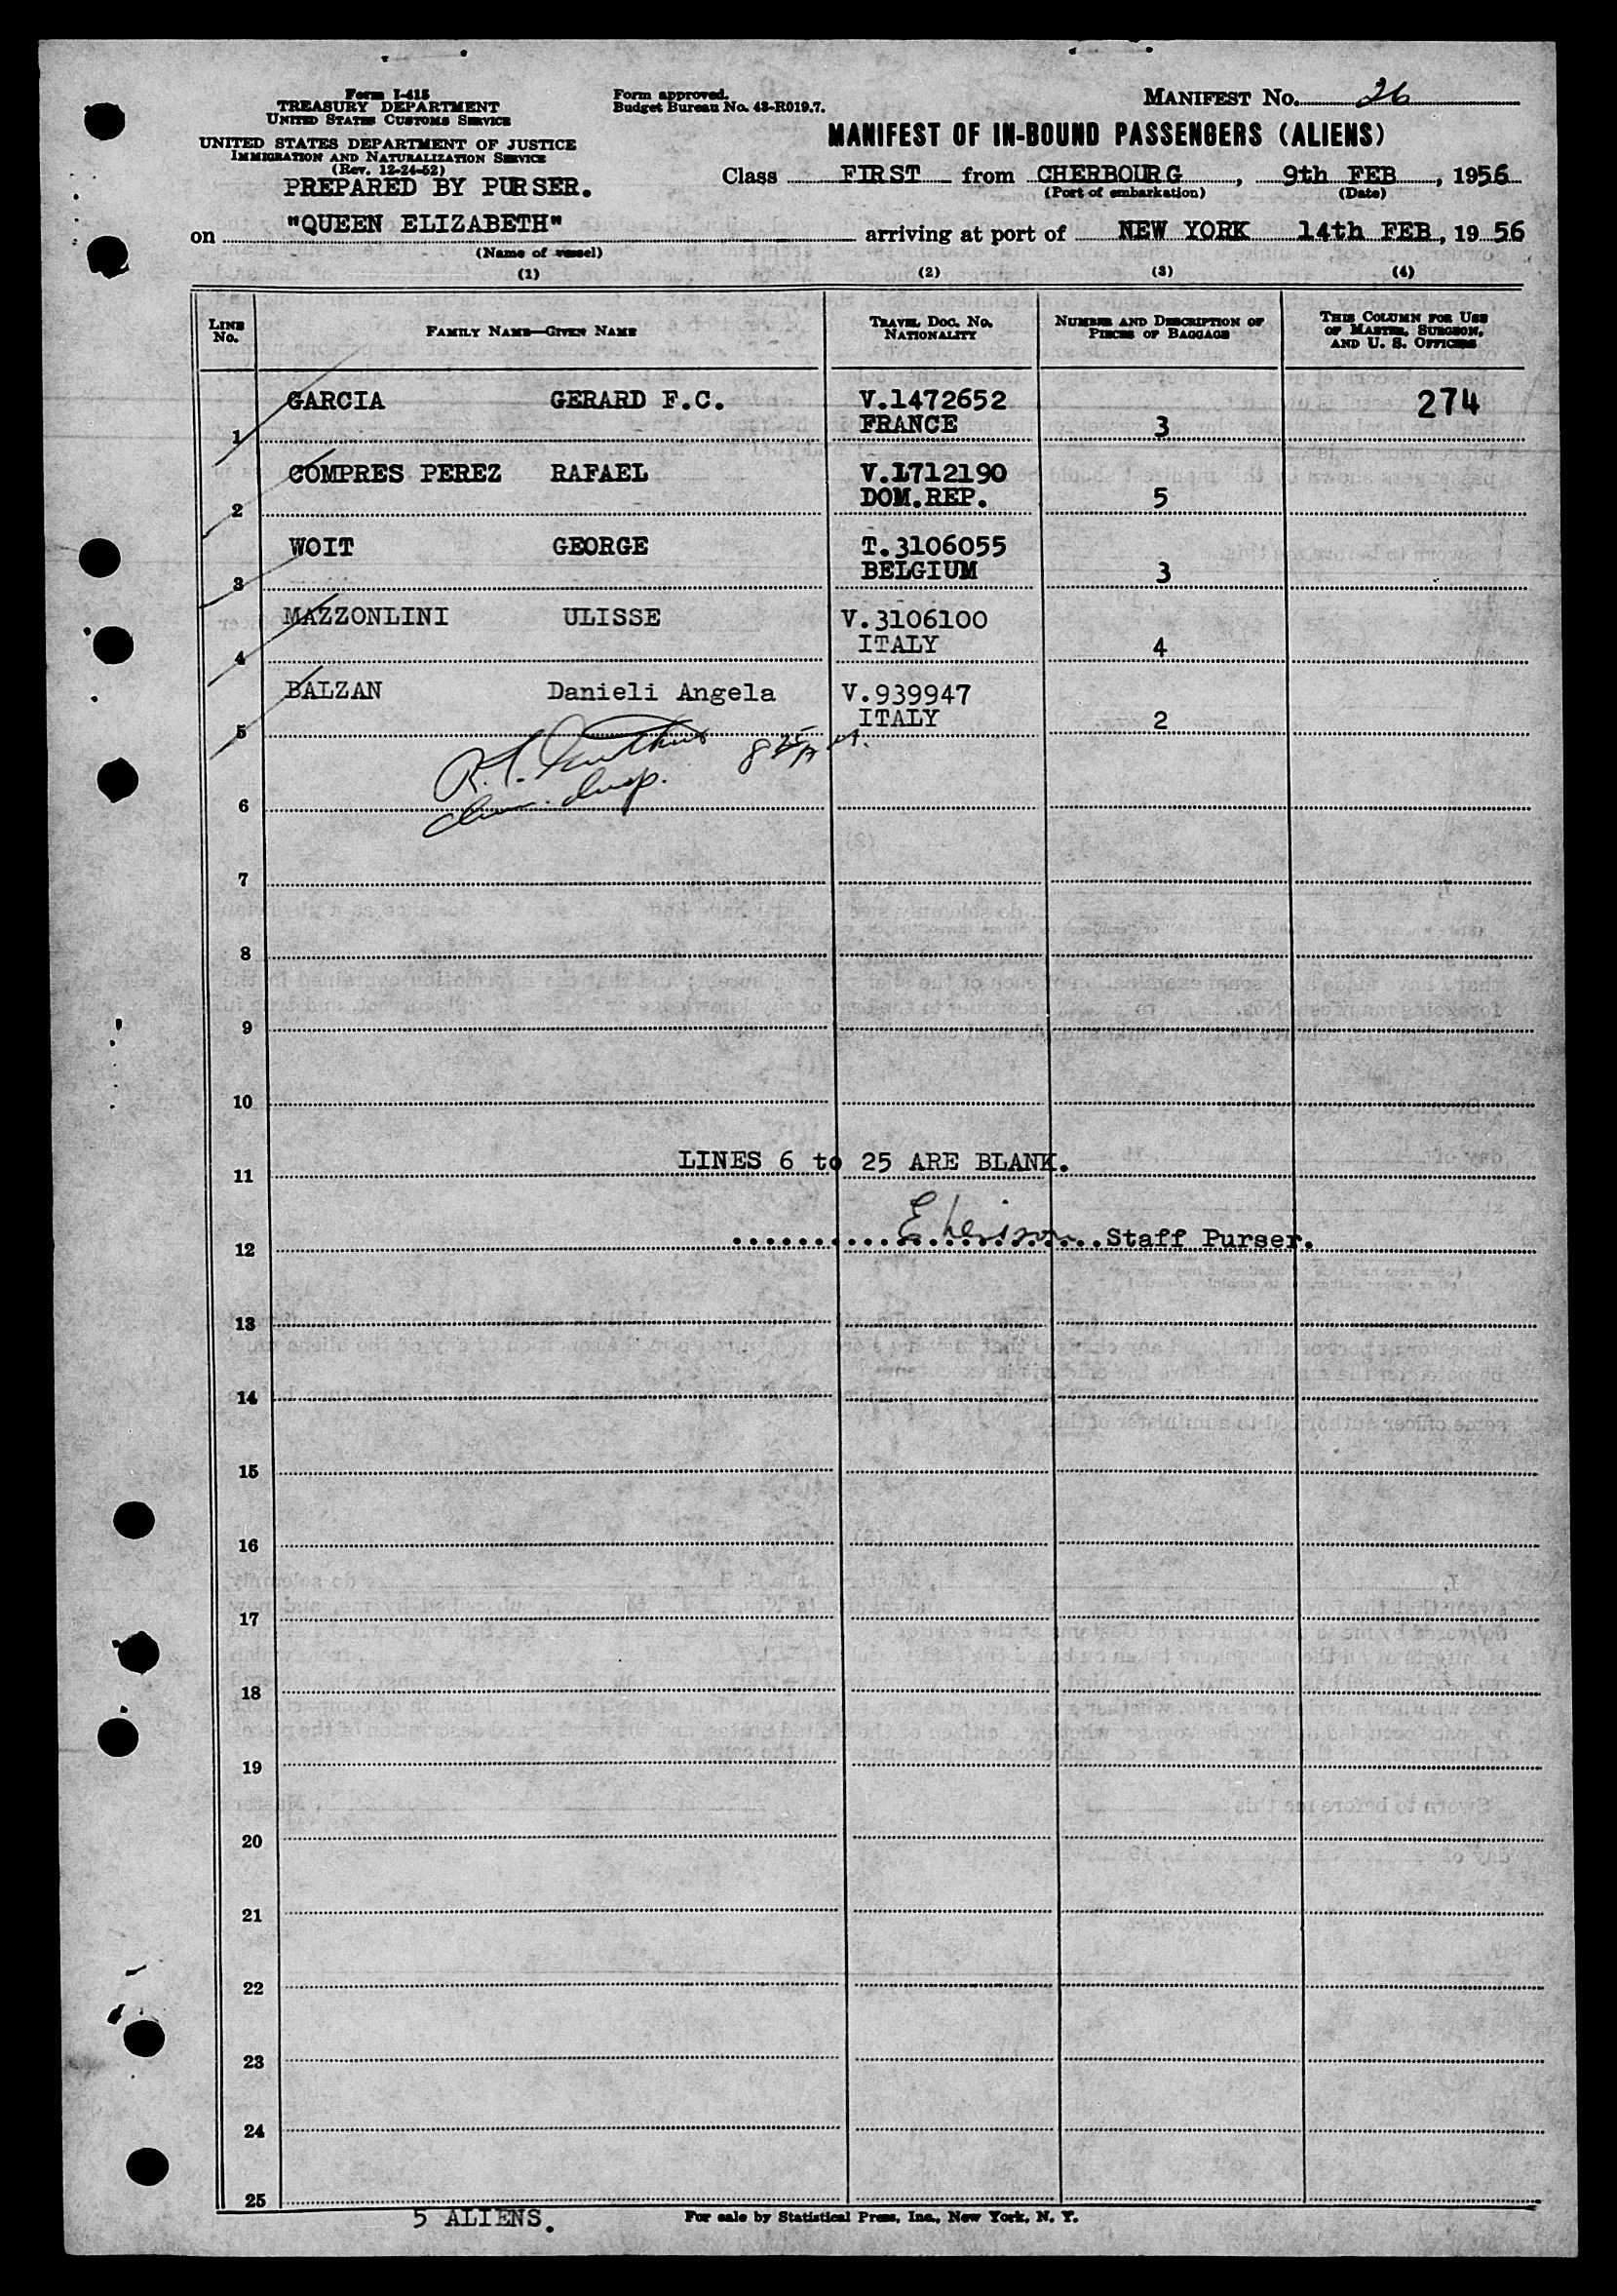 Form I-415
TREASURY DEPARTMENT
UNITED STATES CUSTOMS SERVICE
UNITED STATES DEPARTMENT OF JUSTICE
IMMIGRATION AND NATURALIZATION SERVICE
(Rev. 12-24-52)
PREPARED BY PURSER.
Form approved.
Budget Bureau No. 43-R019.7.
MANIFEST NO. 26
MANIFEST OF IN-BOUND PASSENGERS (ALIENS)
Class FIRST from CHERBOURG, 9th FEB, 1956
(Port of embarkation) (Date)
on "QUEEN ELIZABETH" arriving at port of NEW YORK 14th FEB, 1956
(Name of vessel)
(1) (2) (3) (4)
LINE NO. FAMILY NAME—GIVEN NAME TRAVEL DOC. NO. NATIONALITY NUMBER AND DESCRIPTION OF PIECES OF BAGGAGE THIS COLUMN FOR USE OF MASTER, SURGEON, AND U. S. OFFICERS
GARCIA GERARD F.C. V.1472652 274
1 FRANCE 3
COMPRES PEREZ RAFAEL V.1712190
2 DOM.REP. 5
WOIT GEORGE T.3106055
3 BELGIUM 3
MAZZONLINI ULISSE V.3106100
4 ITALY 4
BALZAN Danieli Angela V.939947
5 ITALY 2
R.T.
Insp.
6
7
8
9
10
LINES 6 to 25 ARE BLANK.
11
Staff Purser.
12
13
14
15
16
17
18
19
20
21
22
23
24
25
5 ALIENS.
For sale by Statistical Press, Inc., New York, N. Y.